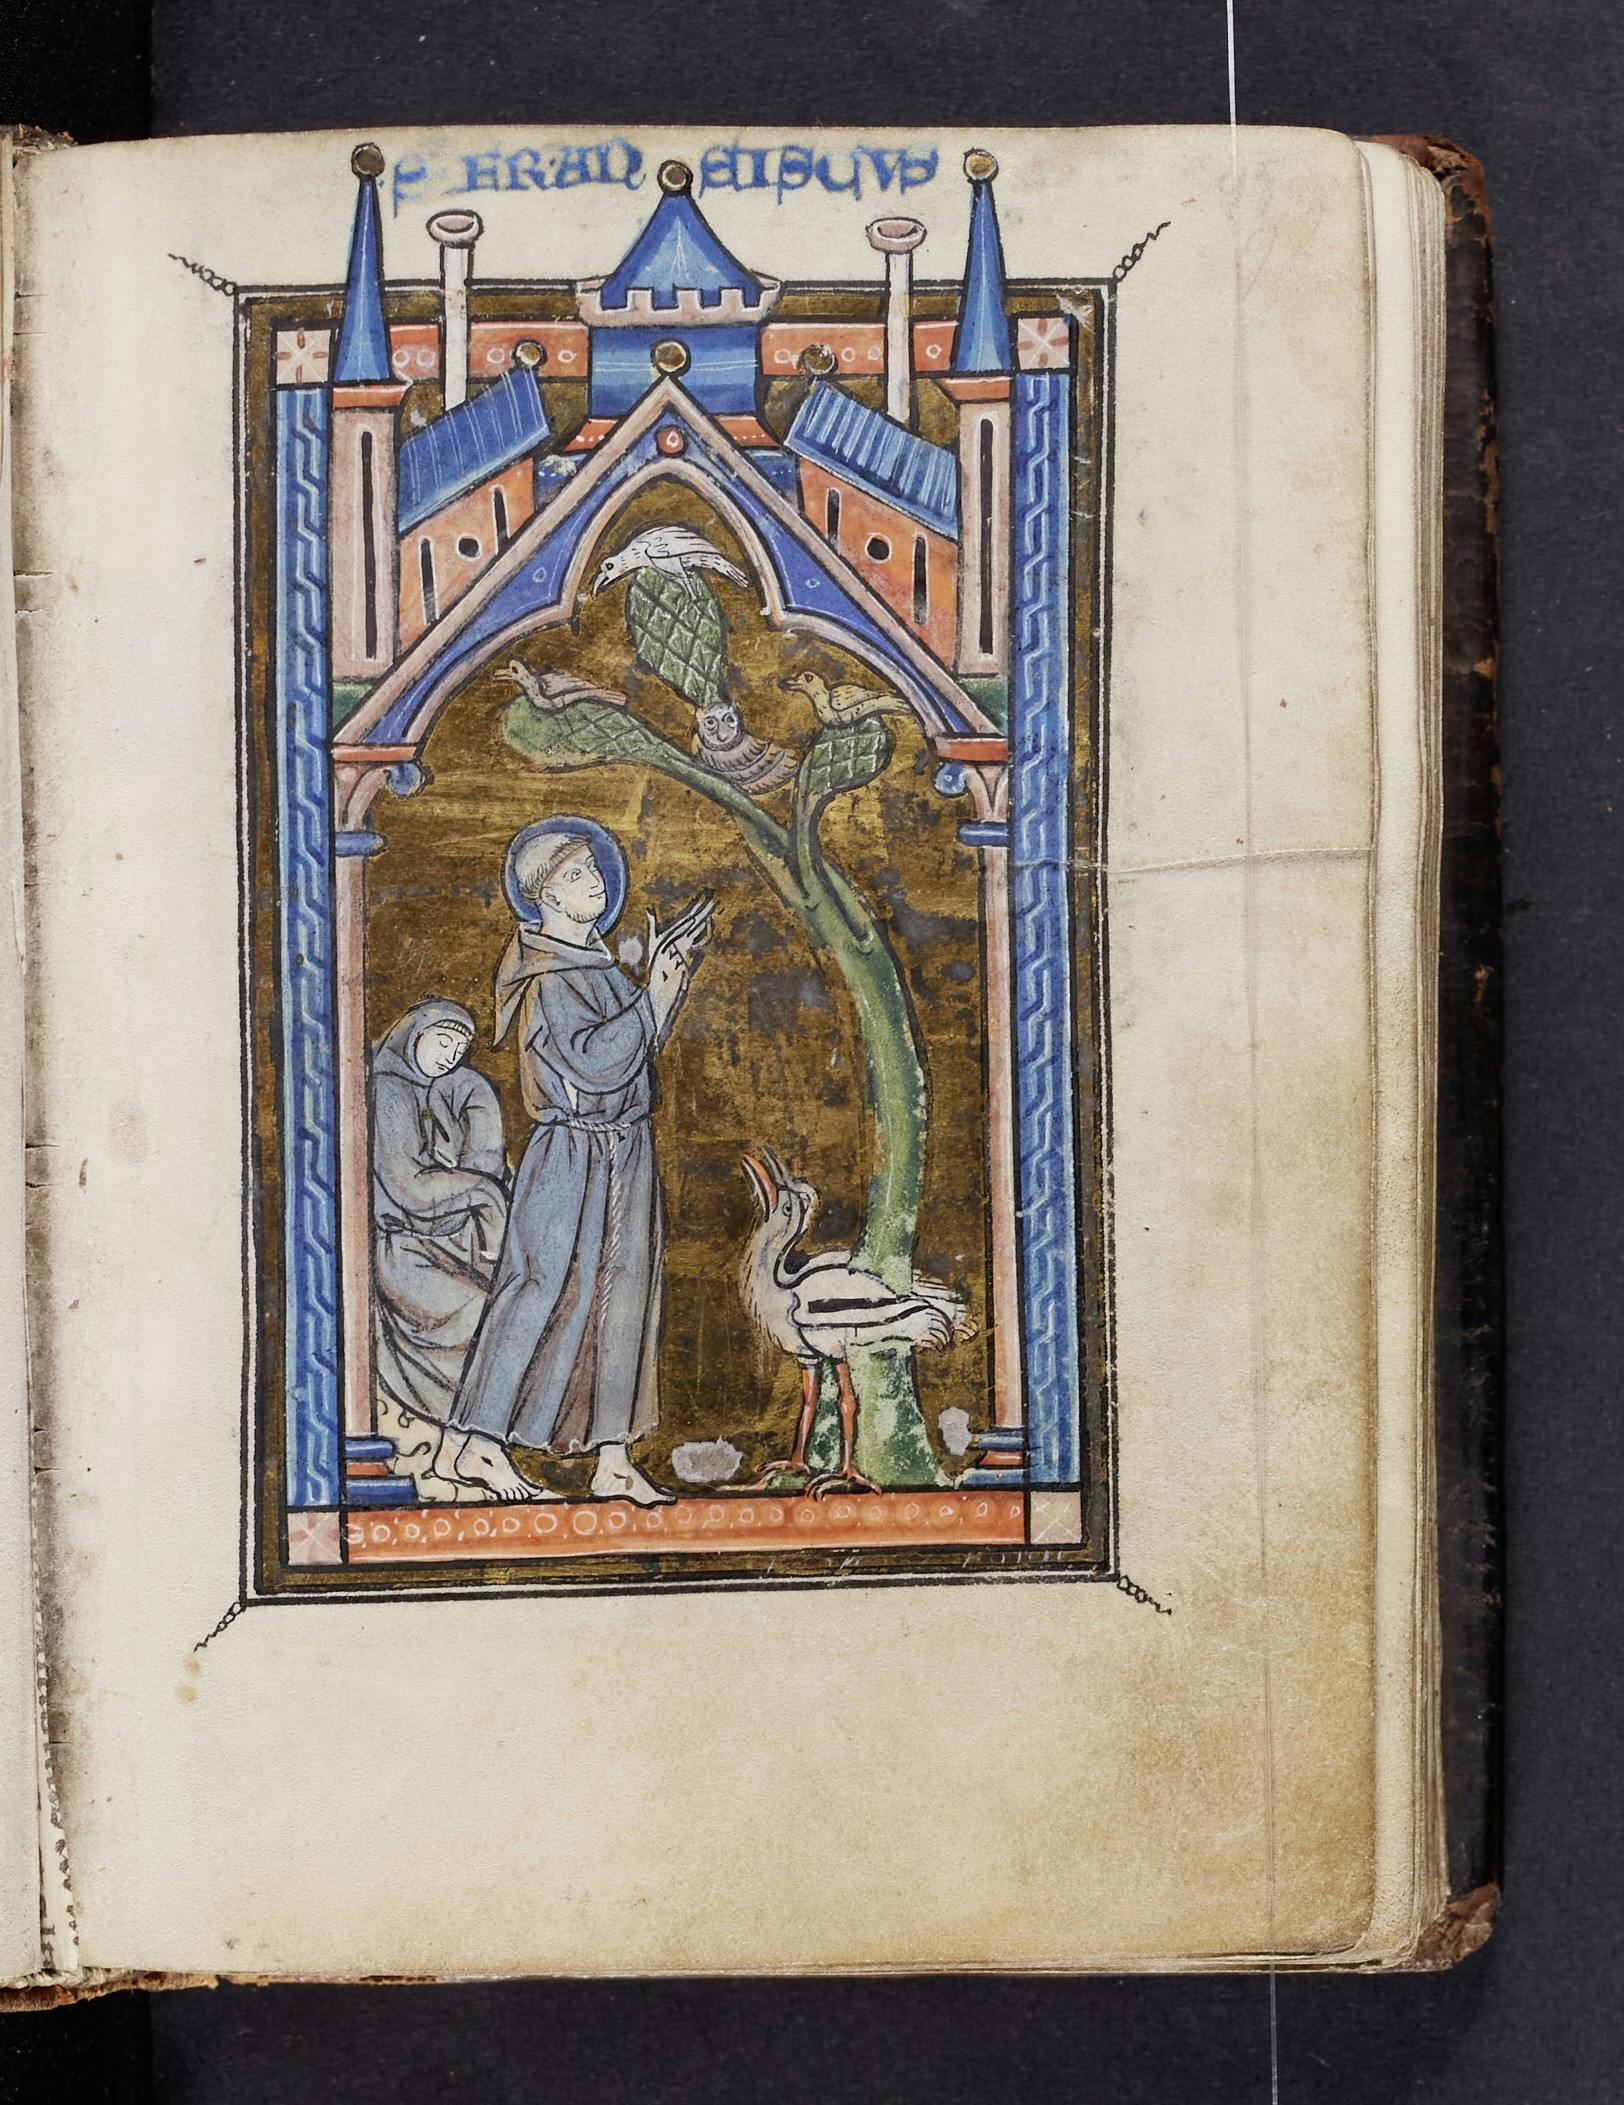 S FRAN SISCVS